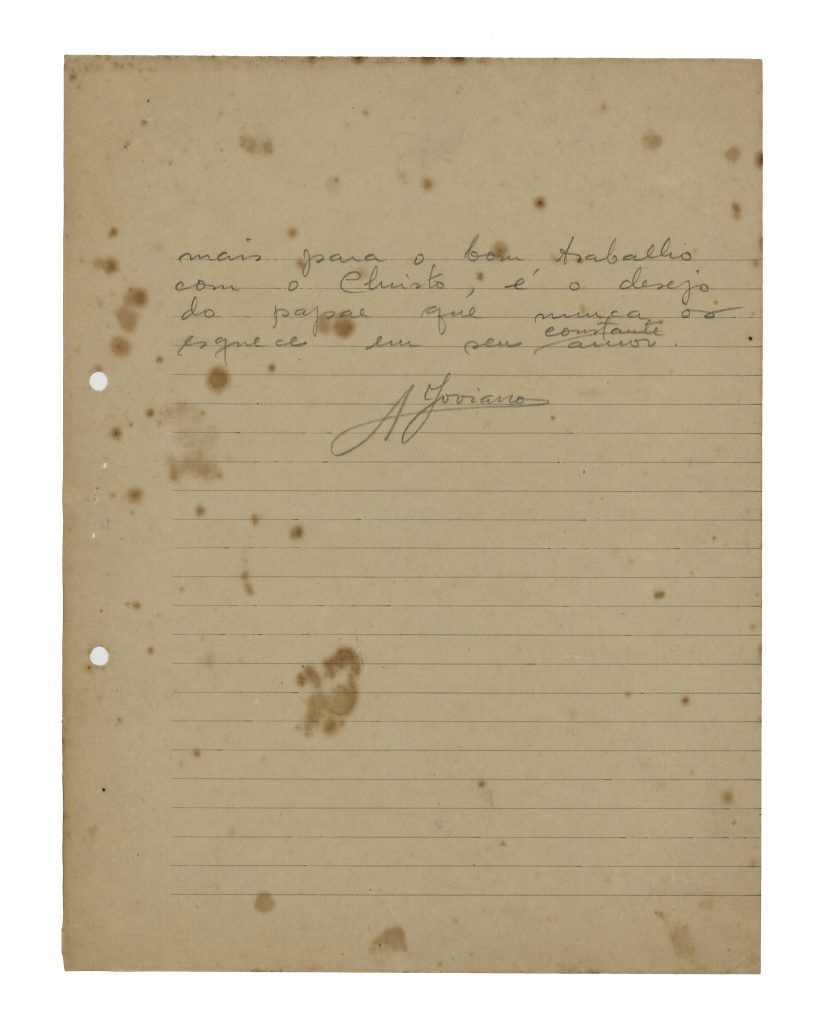 mais para o bom trabalho
com o Christo, é o desejo
do papae que nunca os
esquece em seu constante amor.
A Joviano